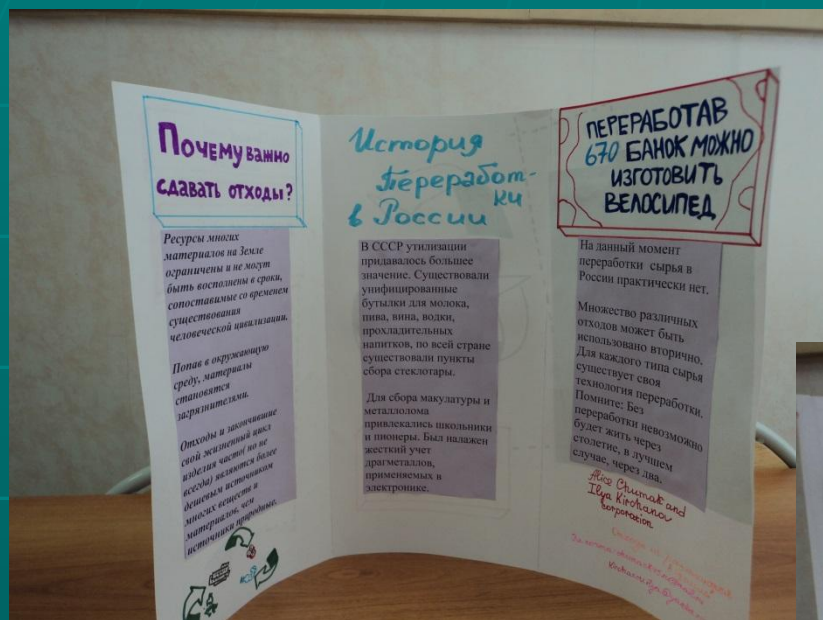 Почему важно
сдавать отходы?
Ресурсы многих
материалов на Земле
ограничены и не могут
быть восполнены в сроки,
сопоставимые со временем
существования
человеческой цивилизации.
Попав в окружающую
среду, материалы
становятся
загрязнителями.
Отходы и закончившие
свой жизненный цикл
изделия часто( но не
всегда) являются более
дешевым источником
многих веществ и
материалов, чем
источники природные.
История
Переработ-
ки
в России
В СССР утилизации
придавалось большее
значение. Существовали
унифицированные
бутылки для молока,
пива, вина, водки,
прохладительных
напитков, по всей стране
существовали пункты
сбора стеклотары.
Для сбора макулатуры и
металлолома
привлекались школьники
и пионеры. Был налажен
жесткий учет
драгметаллов,
применяемых в
электронике.
ПЕРЕРАБОТАВ
670 БАНОК МОЖНО
ИЗГОТОВИТЬ
ВЕЛОСИПЕД
На данный момент
переработки сырья в
России практически нет.
Множество различных
отходов может быть
использовано вторично.
Для каждого типа сырья
существует своя
технология переработки.
Помните: Без
переработки невозможно
будет жить через
столетие, в лучшем
случае, через два.
Alice Chumak and
Ilya Kirohanov
korporation